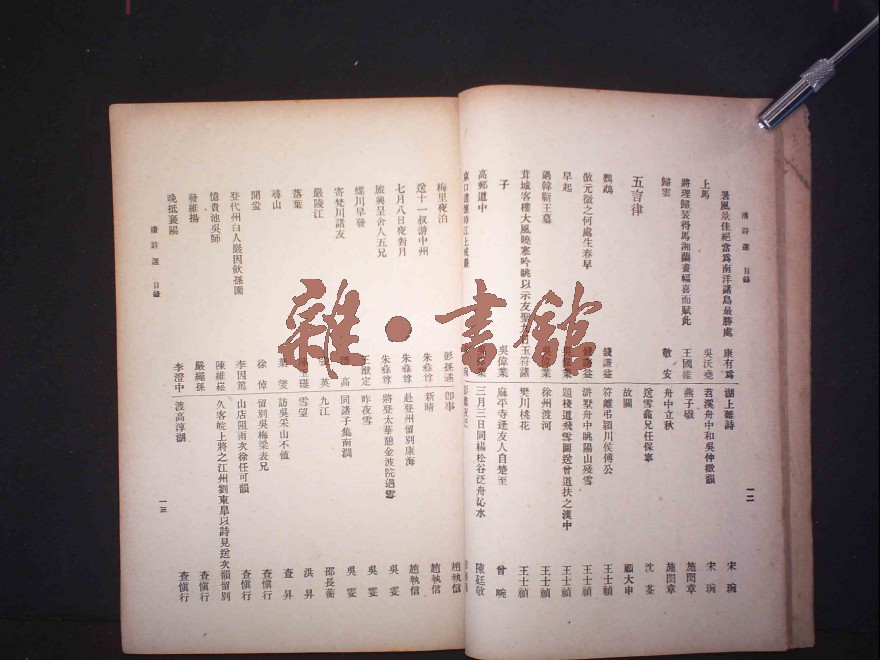 清詩選 目錄
一二
暑風景佳絕當爲南洋諸島最勝處 康有爲
上馬 吳沃堯
將理歸裝得馬湘蘭畫幅喜而賦此 王國維
歸雲 敬安
五言律
鸚鵡 錢謙益
倣元微之何處生春早 錢謙益
早起
過韓蘄王墓 吳偉業
茸城客樓大風曉寒吟眺以示友聖九日玉符諸
子 吳偉業
高郵道中
湖上雜詩 宋琬
苕溪舟中和吳仲徵韻 宋琬
燕子磯 施閏章
舟中立秋 施閏章
送雪龕兄任保寧 沈荃
故關 顧大申
符離弔潁川侯傅公 王士禎
滸墅舟中眺陽山殘雪 王士禎
題棧道飛雪圖送曾道扶之漢中 王士禎
徐州渡河 王士禎
樊川桃花 王士禎
麻平寺逢友人自楚至 曾畹
三月三日同楊松谷泛舟沁水 陳廷敬
梅里夜泊 彭孫遹
送十一叔游中州 朱彝尊
七月八日夜對月 朱彝尊
旅興呈舍人五兄 朱彝尊
螺川早發 王猷定
寄樊川諸友 高
嚴陵江 英
落葉
尋山 葉燮
聞蛩 徐倬
登代州白人巖因飲孫園 李因篤
憶貴池吳師 陳維崧
發維揚 嚴繩孫
晚抵襄陽 李澄中
卽事 趙執信
新晴 趙執信
赴登州留別康海 趙執信
將登太華憩金波院遇雪 吳雯
昨夜雪 吳雯
同諸子集南澗 吳雯
九江 邵長蘅
雪望 洪昇
訪吳采山不値 查昇
留別吳梅梁表兄 查愼行
山店阻雨次徐任可韻 查愼行
久客皖上將之江州劉東皐以詩見送次韻留別 查愼行
渡高淳湖 查愼行
清詩選 目錄
一三
雜·書館